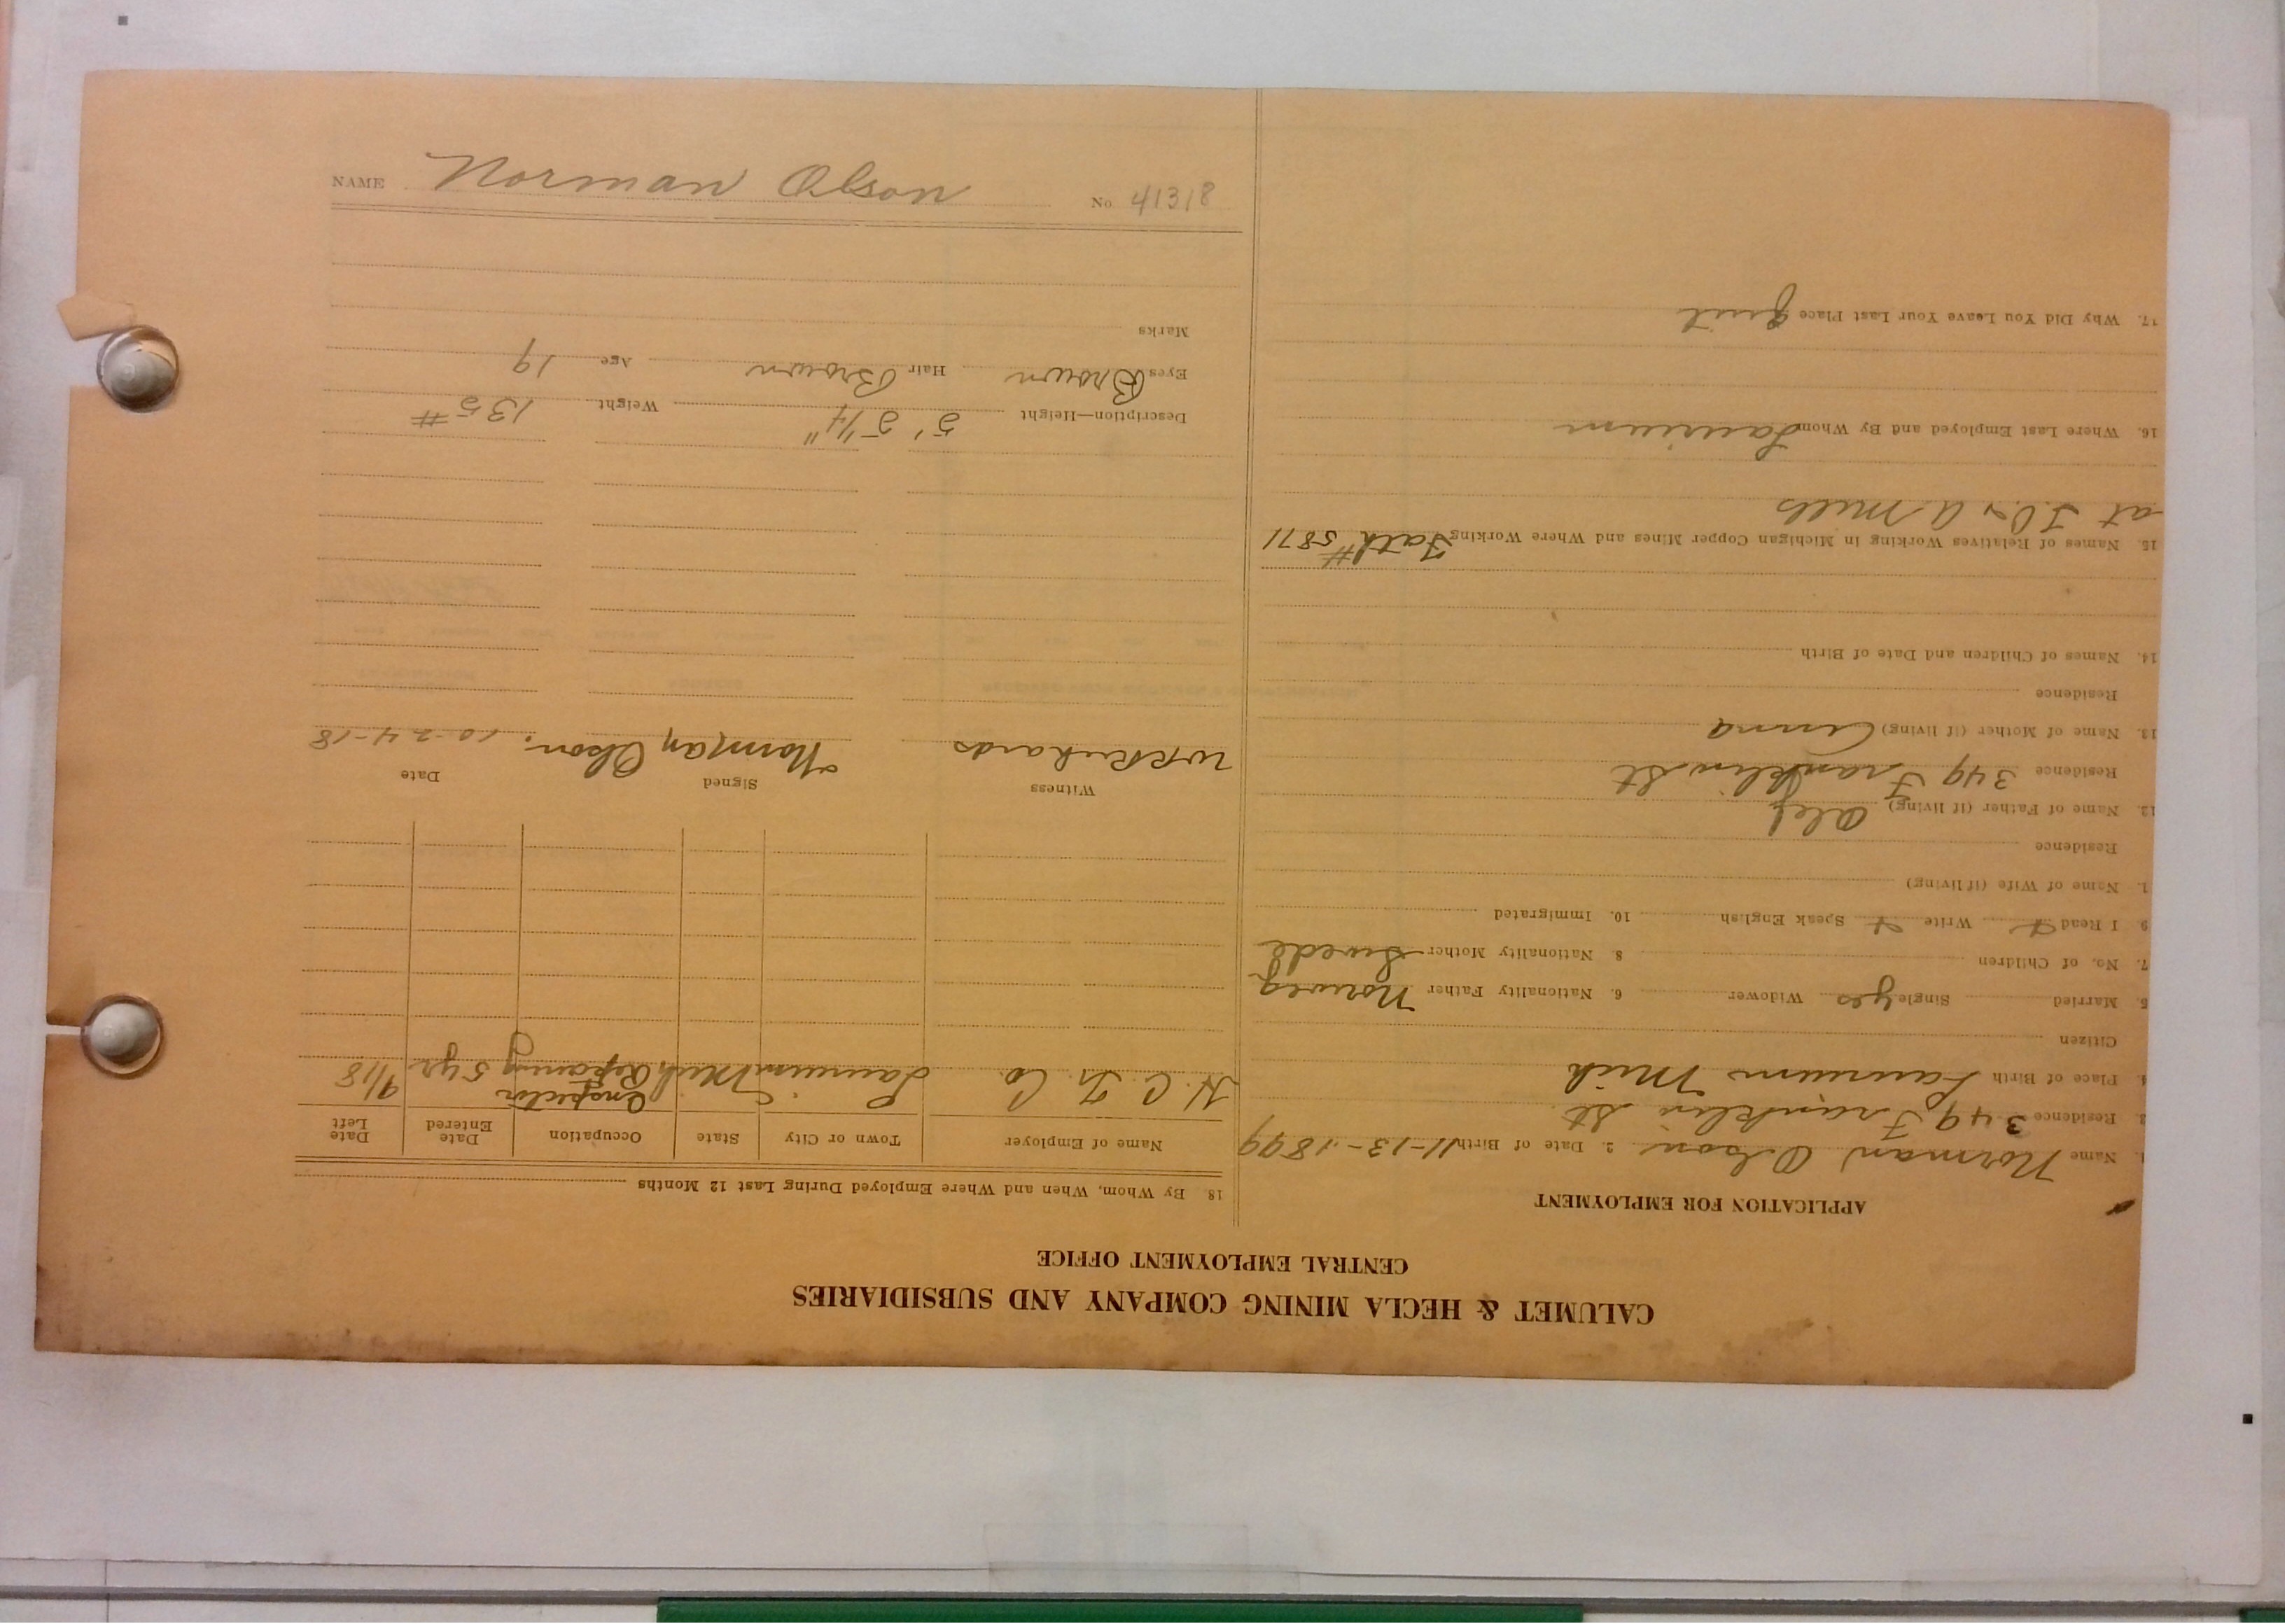 CALUMET & HECLA MINING COMPANY AND SUBSIDIARIES
CENTRAL EMPLOYMENT OFFICE
APPLICATION FOR EMPLOYMENT
1. Name Norman Olson 2. Date of Birth 11-13-1899
3. Residence 349 Franklin St
4. Place of Birth Laurium Mich
Citizen
5. Married Single yes Widower 6. Nationality Father Norweg
7. No. of Children 8. Nationality Mother Swede
9. I Read Write Speak English 10. Immigrated
1. Name of Wife (if living)
Residence
12. Name of Father (if living) Olef
Residence 349 Franklin St
13. Name of Mother (if living) Anna
Residence
14. Names of Children and Date of Birth
15. Names of Relatives Working in Michigan Copper Mines and Where Working Fath #5871
at Mills
16. Where Last Employed and By Whom Laurium
17. Why Did You Leave Your Last Place Quit
18. By Whom, When and Where Employed During Last 12 Months
Name of Employer Town or City State Occupation Date Entered Date Left
H. C. Co. Laurium Mich Inspector Repairing 5 yr 9/18
Witness Signed Date
Norman Olson. 10-24-18
Description—Height 5' 5 1/4" Weight 135 #
Eyes Brown Hair Brown Age 19
Marks
NAME Norman Olson No. 41318